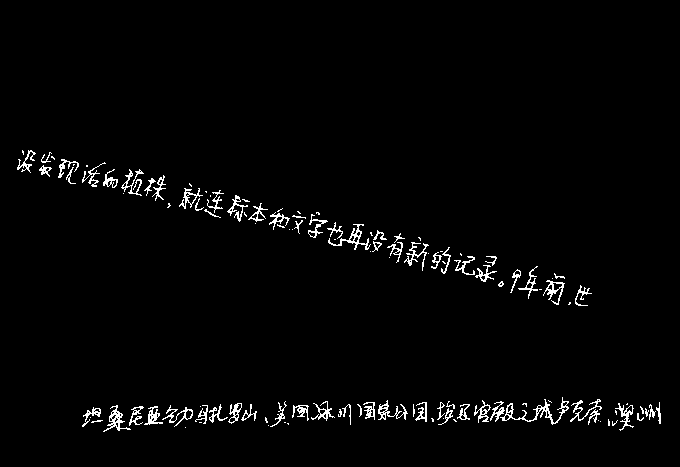 没发现活的植株,就连标本和文字也再没有新的记录。9年前,世
坦桑尼亚乞力马扎罗山、美国冰川国家公园、埃及宫殿之城卢克索、澳洲